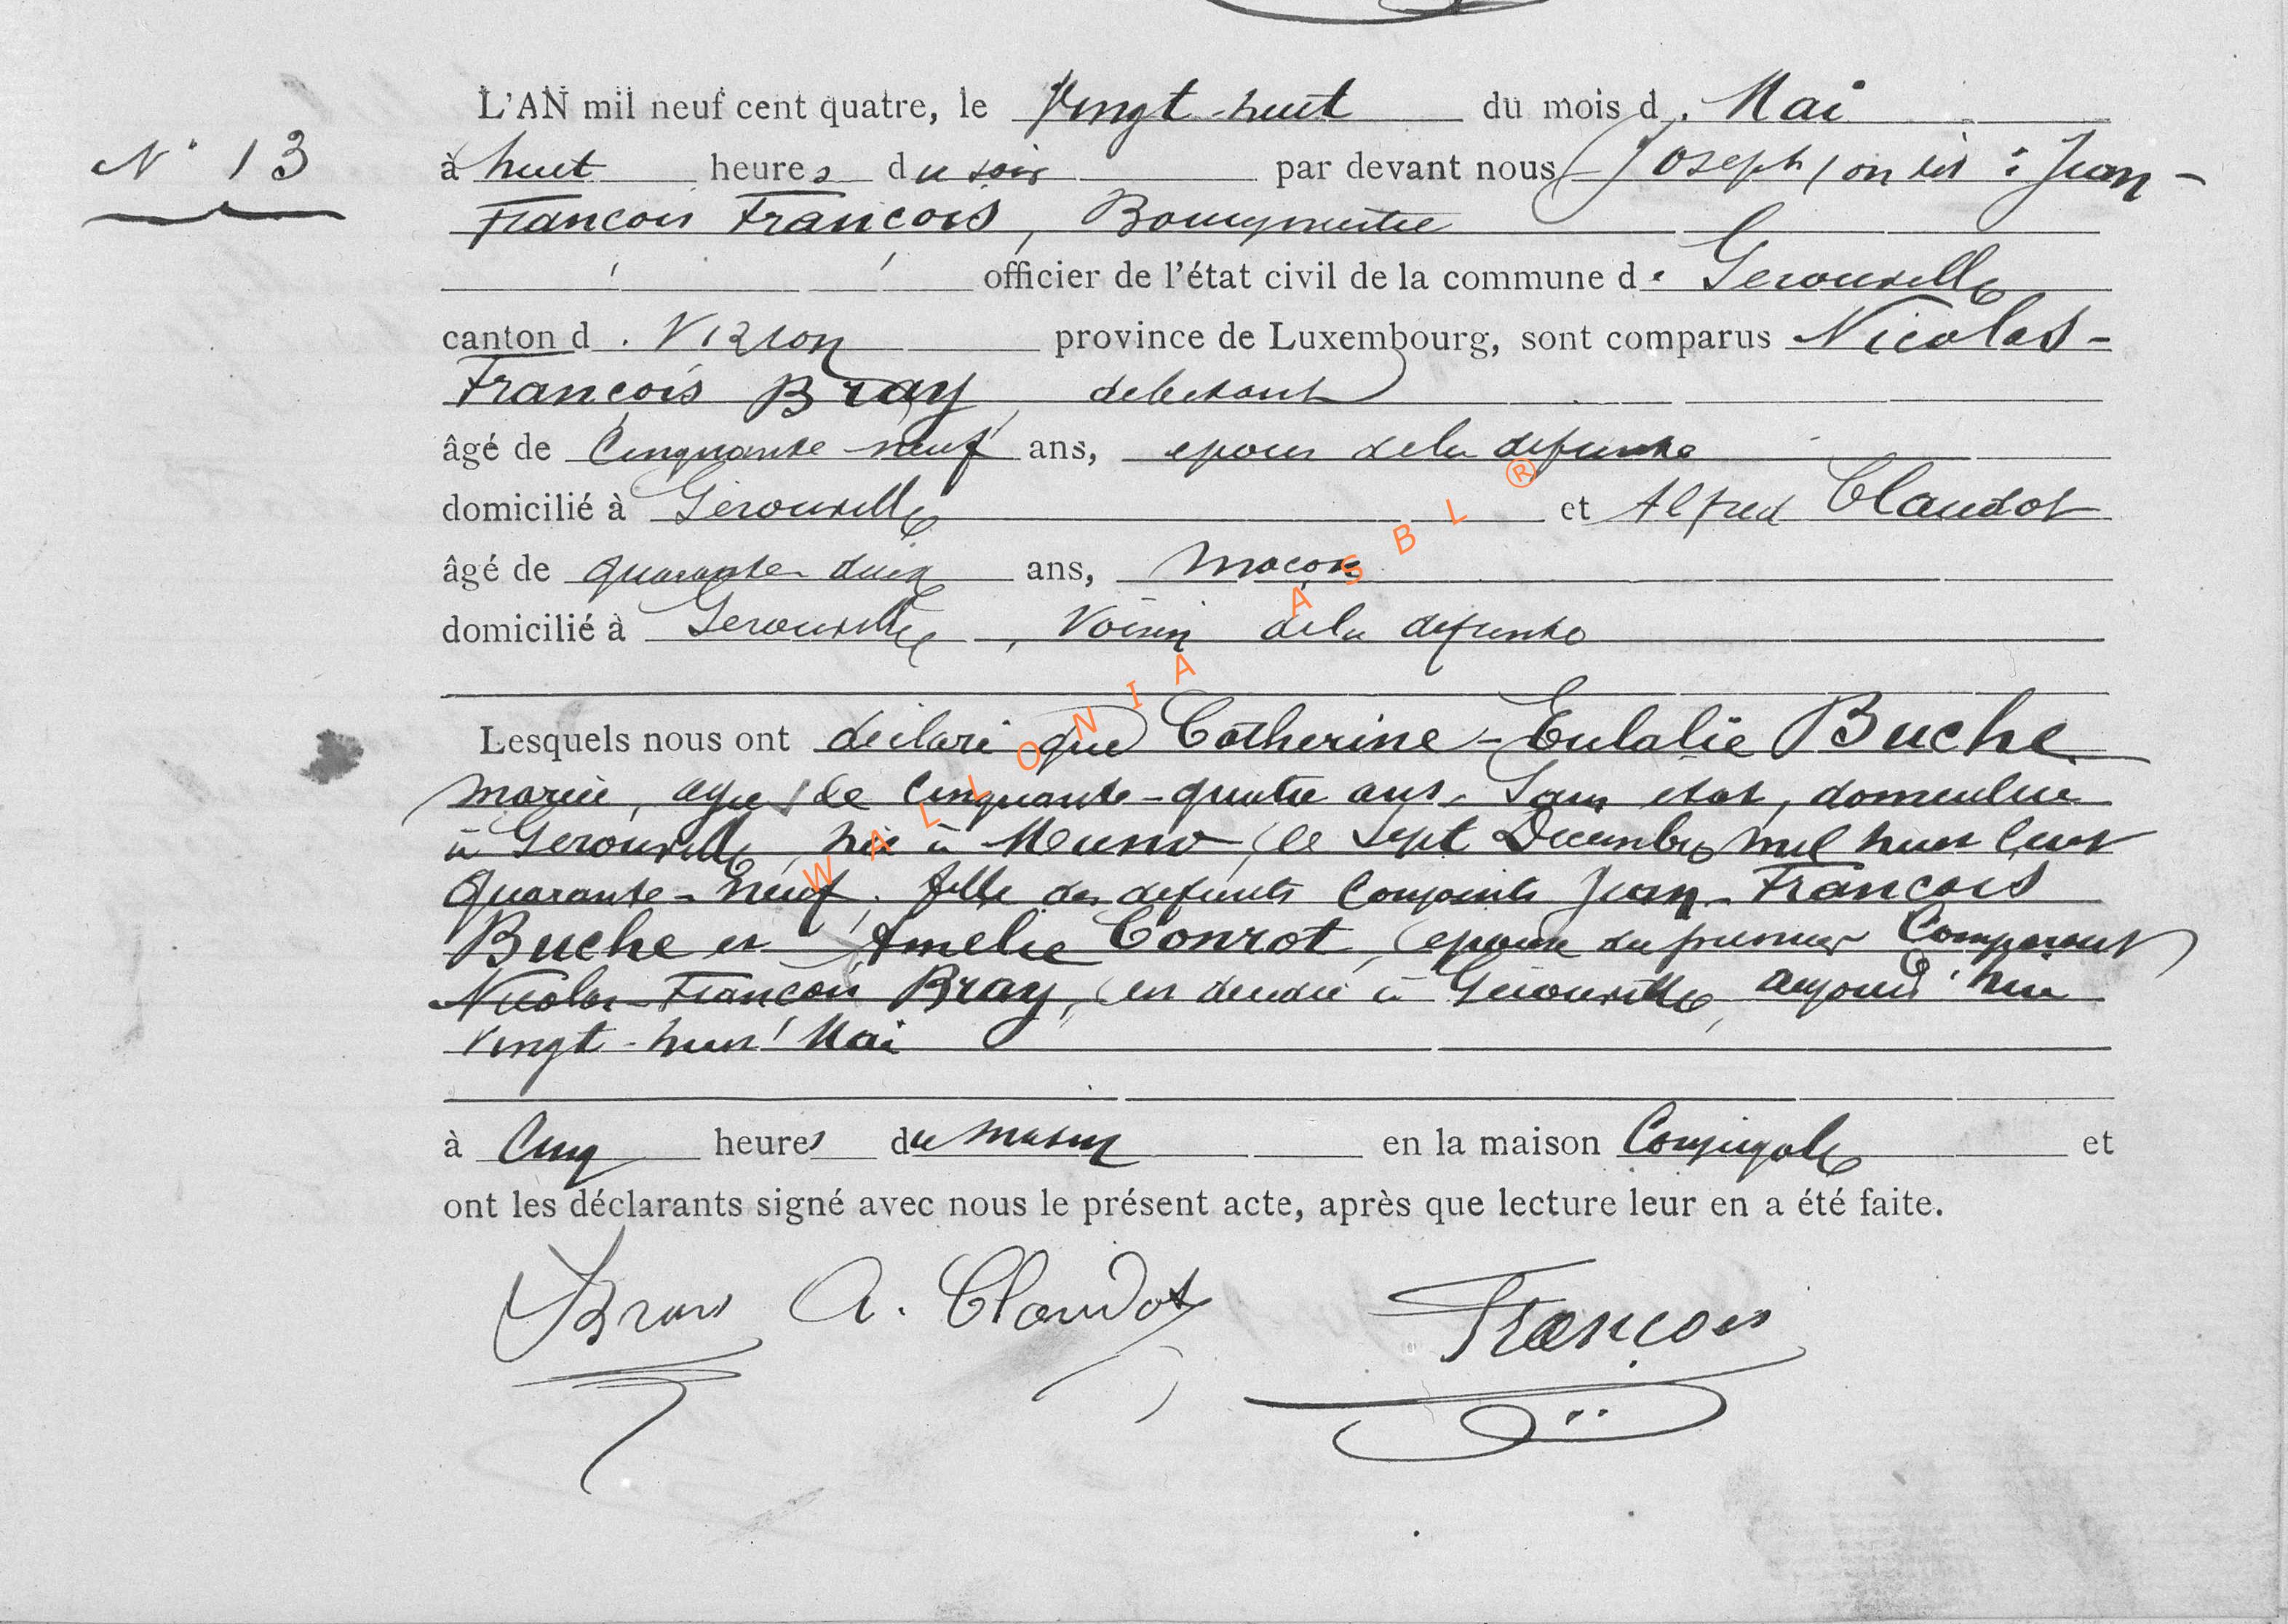 L'AN mil neuf cent quatre, le Vingt-huit du mois de Mai
N° 13
à huit heures du soir par devant nous Joseph, on lit : Jean-
François François, Bourgmestre
officier de l'état civil de la commune de Gerouville
canton de Virton province de Luxembourg, sont comparus Nicolas-
François Bray, debitant
âgé de Cinquante neuf ans, epoux de la defunte
domicilié à Gerouville et Alfred Claudot
âgé de quarante deux ans, Maçon
domicilié à Gerouville, Voisin de la defunte
Lesquels nous ont déclaré que Catherine-Eulalie Buche
mariée, agée de Cinquante-quatre ans, Sans etat, domiciliée
à Gerouville, née à le Sept Decembre mil huit Cent
Quarante-neuf, fille des defunts Conjoints Jean-François
Buche et Amelie Conrot, epouse du premier Comparant
Nicolas-François Bray, est decedée à Gerouville, aujourd'hui
Vingt-huit Mai
à Cinq heures du matin en la maison Conjugale et
ont les déclarants signé avec nous le présent acte, après que lecture leur en a été faite.
Bray A. Claudot François
WALLONIA ASBL ®